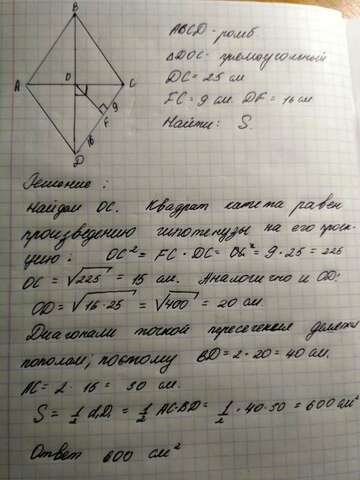 B
A
O
C
9
F
16
D
ABCD - ромб
ΔDOC - прямоугольный
DC = 25 см
FC = 9 см. DF = 16 см
Найти: S.
Решение:
Найдем OC. Квадрат катета равен
произведению гипотенузы на его проек-
цию: OC² = FC · DC = OC² = 9 · 25 = 225
OC = √225 = 15 см. Аналогично и OD:
OD = √16·25 = √400 = 20 см.
Диагонали точкой пересечения делятся
пополам, поэтому BD = 2 · 20 = 40 см.
AC = 2 · 15 = 30 см.
S = 1/2 d₁D₁ = 1/2 AC·BD = 1/2 · 40·30 = 600 см²
Ответ 600 см²